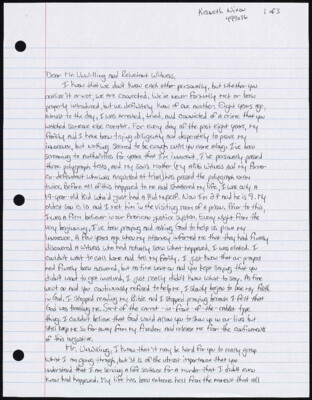 Kenneth Nixon
1 of 3
Dear Mr. Unwilling and Reluctant Witness,
I know that we don't know each other personally, but whether you
realize it or not, we are connected. We've never formally met or been
properly introduced, but we definitely know of one another. Eight years ago,
almost to the day, I was arrested, tried, and convicted of a crime that you
watched someone else commit. For every day of the past eight years, my
family and I have been trying diligently and desperately to prove my
innocence, but nothing seemed to be enough until you came along. I've been
screaming to authorities for years that I'm innocent. I've personally passed
three polygraph tests, and my (my alibi witness and my former
co-defendant who was acquitted at trial) has passed the polygraph exam
twice. Before all of this happened to me and shattered my life, I was only a
19-year-old kid who'd just had a kid myself. Now I'm 27 and he is 9. My
oldest son is 10 and I met him in the visiting room of a prison. Prior to this,
I was a firm believer in our American justice system. Every night from the
very beginning, I've been praying and asking God to help us prove my
innocence. A few years ago when my attorney informed me that they had finally
discovered a witness who had actually seen what happened, I was elated. I
couldn't wait to call home and tell my family. I just knew that our prayers
had finally been answered, but as time went on and you kept saying that you
didn't want to get involved, I just really didn't know what to say. As time
went on and you continuously refused to help me, I slowly began to lose my faith
in God. I stopped reading my Bible and I stopped praying because I felt that
God was teasing me. Sort of the carrot-in-front-of-the-rabbit type
thing. I couldn't believe that God would allow you to show up in our lives but
still keep me so far away from my freedom and release me from the confinements
of this injustice.
Mr. Unwilling, I know that it may be hard for you to really grasp
what I am going through, but it is of the utmost importance that you
understand that I am serving a life sentence for a murder that I didn't even
know had happened. My life has been reduced hell from the moment that all